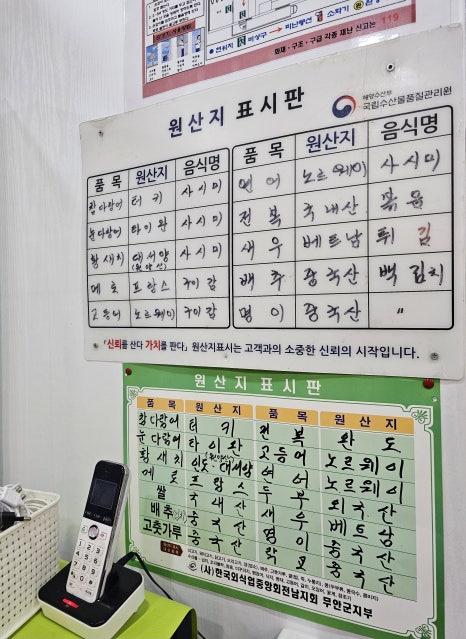 현위치 비상구 피난동선 소화기 완
화재·구조·구급 각종 재난 신고는 119
원산지 표시판
해양수산부
국립수산물품질관리원
품목 원산지 음식명 품목 원산지 음식명
참다랑어 터키 사시미 연어 노르웨이 사시미
눈다랑어 타이완 사시미 전복 국내산 볶음
황새치 대서양 (원양산) 사시미 새우 베트남 튀김
메로 프랑스 구이감 배추 중국산 백김치
고등어 노르웨이 구이감 명이 중국산 〃
「신뢰를 산다 가치를 판다」 원산지표시는 고객과의 소중한 신뢰의 시작입니다.
원산지표시판
품목 원산지 품목 원산지
참다랑어 터키 전복 완도
눈다랑어 타이완 고등어 노르웨이
황새치 인도·대서양 연어 노르웨이
메로 프랑스 두부 외국산
쌀 국내산 새우 베트남
배추 중국산 명이 중국산
고춧가루 중국산 중국산
(사)한국외식업중앙회전남지회 무안군지부